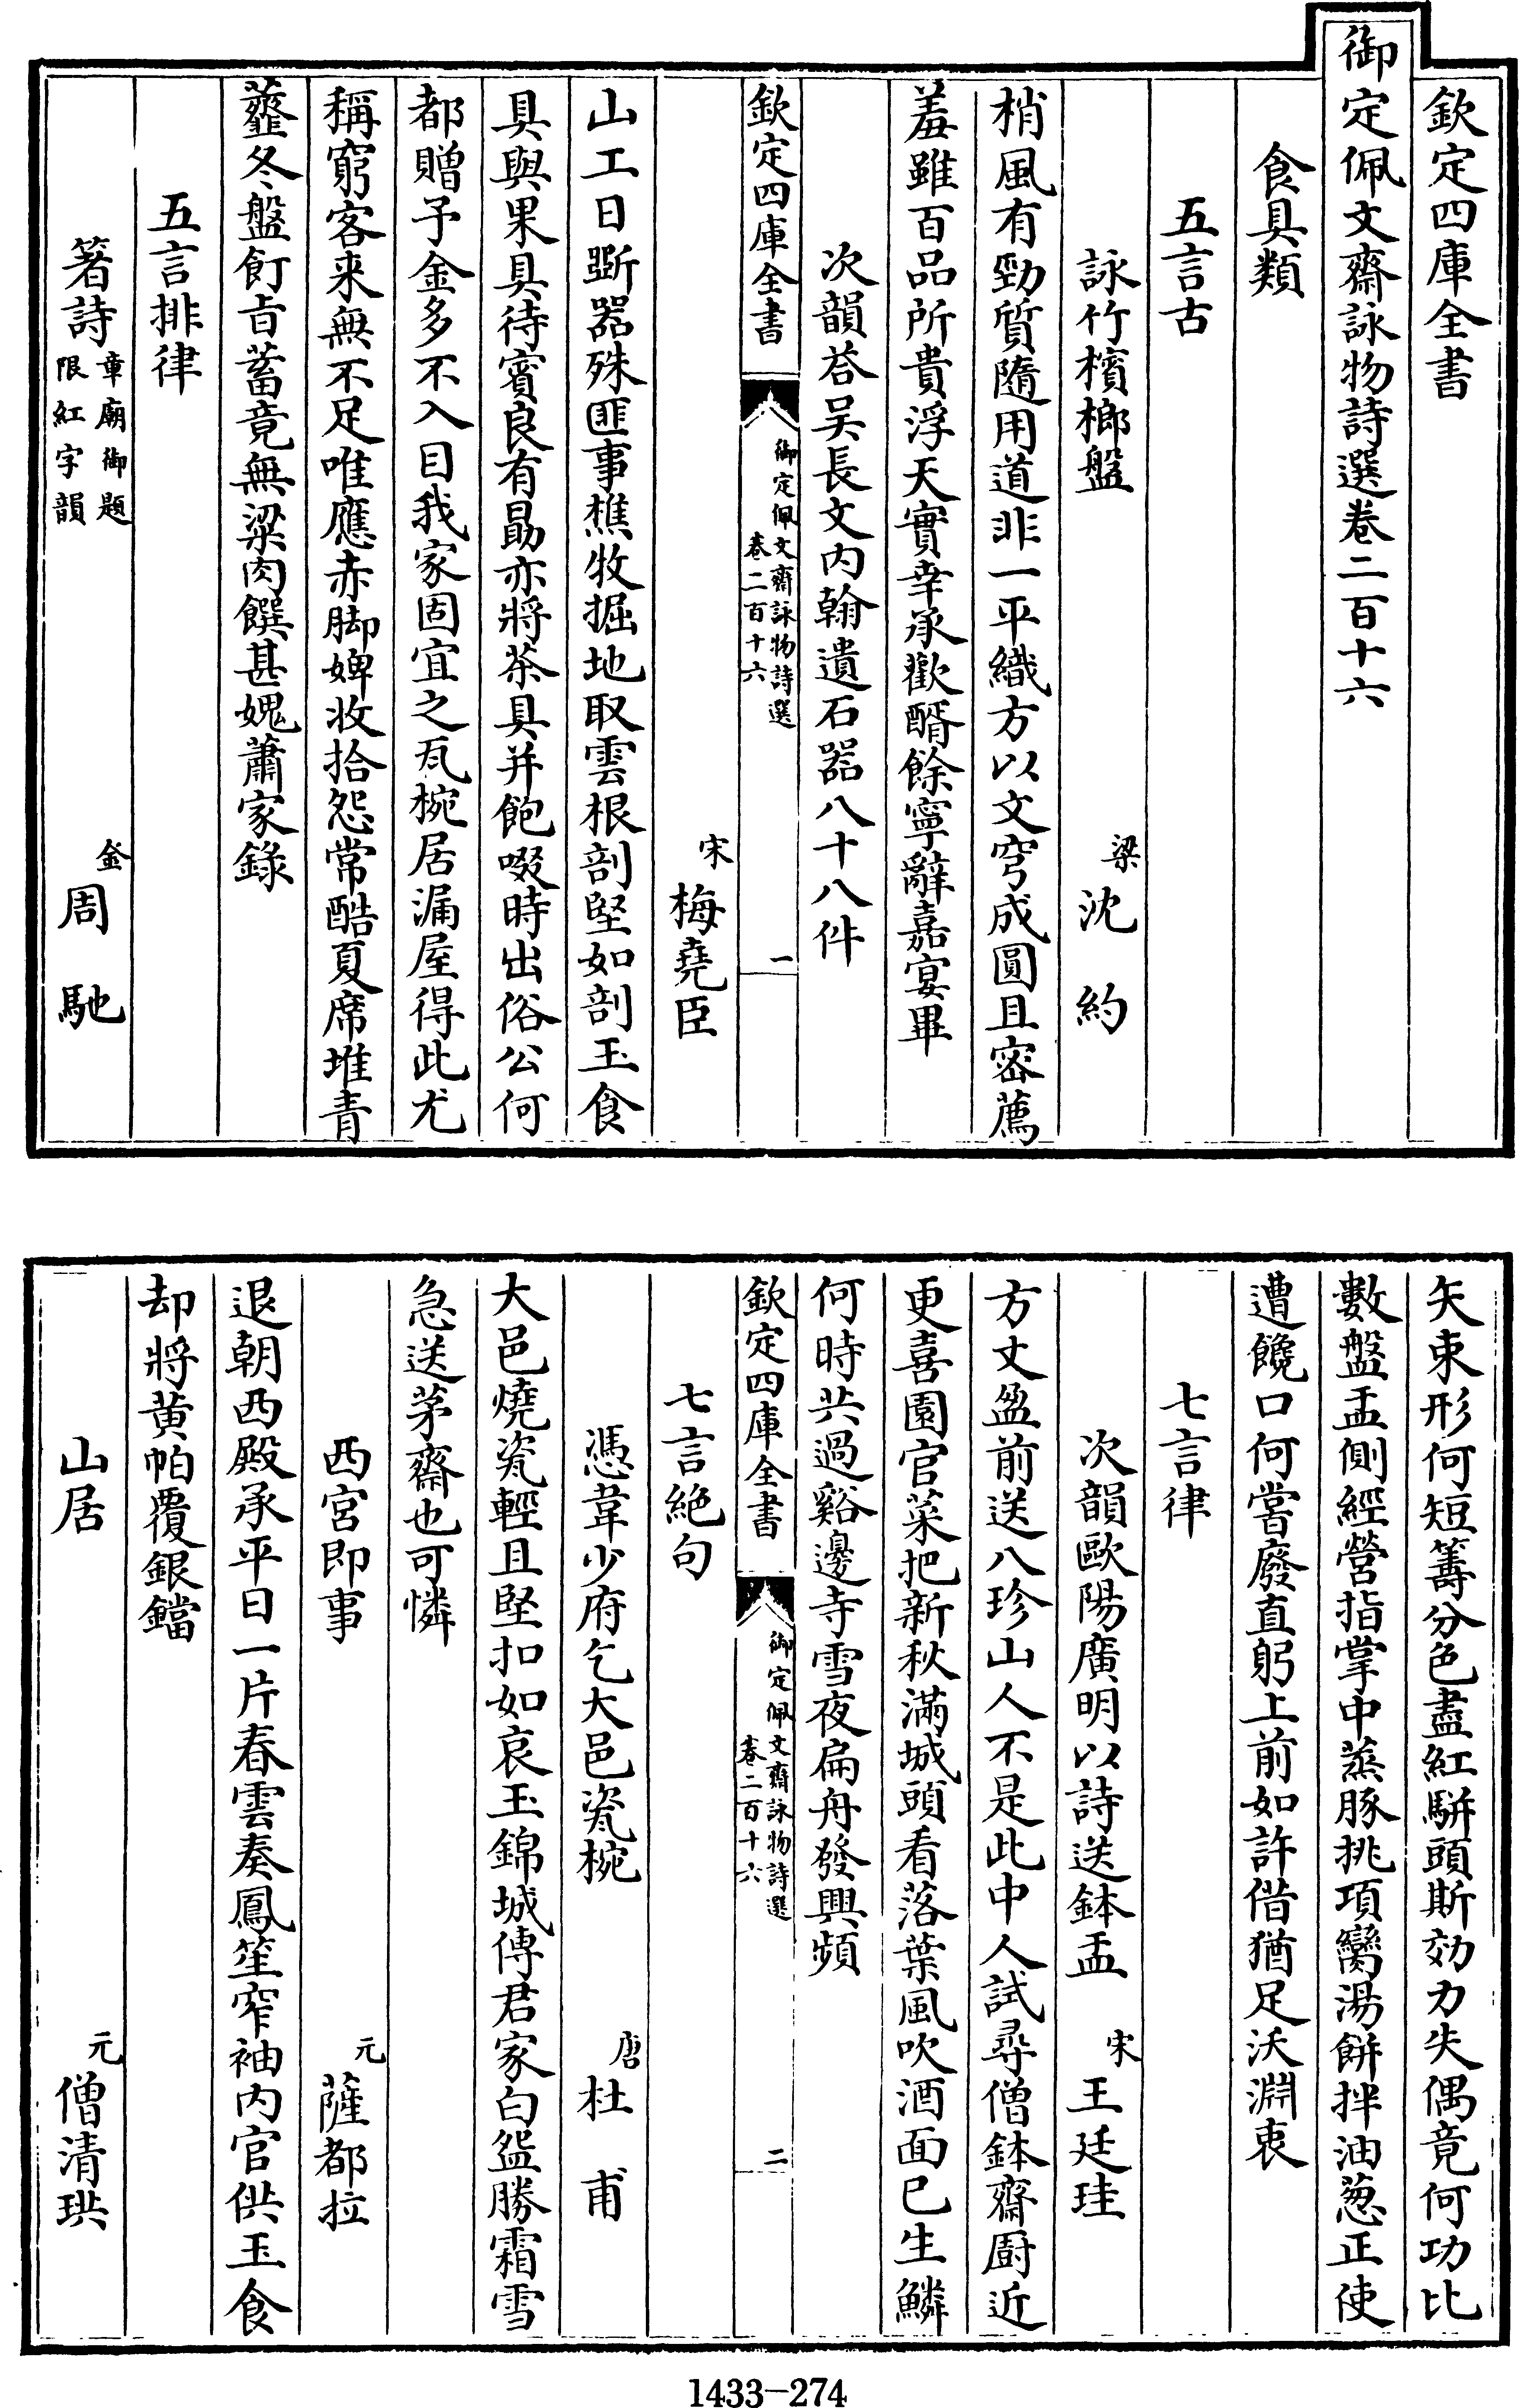 欽定四庫全書
御定佩文齋詠物詩選卷二百十六
食具類
五言古
詠竹檳榔盤 梁 沈約
梢風有勁質隨用道非一平織方以文穹成圓且密薦
羞雖百品所貴浮天實幸承歡醑餘寧辭嘉宴畢
次韻荅吳長文内翰遺石器八十八件
宋 梅堯臣
欽定四庫全書 御定佩文齋詠物詩選 卷二百十六 一
山工日斲器殊匪事樵牧掘地取雲根剖堅如剖玉食
具與果具待賓良有勗亦將茶具并飽啜時出俗公何
都贈予金多不入目我家固宜之瓦椀居漏屋得此尤
稱窮客来無不足唯應赤脚婢收拾怨常酷夏席堆青
虀冬盤飣旨蓄竟無粱肉饌甚媿蕭家錄
五言排律
箸詩 章廟御題限紅字韻 金 周馳
矢束形何短籌分色盡紅駢頭斯効力失偶竟何功比
數盤盂側經營指掌中蒸豚挑項臠湯餅拌油葱正使
遭饞口何嘗廢直躬上前如許借猶足沃淵衷
七言律
次韻歐陽廣明以詩送鉢盂 宋 王廷珪
方丈盈前送八珍山人不是此中人試尋僧鉢齋厨近
更喜園官菜把新秋滿城頭看落葉風吹酒面已生鱗
何時共過谿邊寺雪夜扁舟發興頻
欽定四庫全書 御定佩文齋詠物詩選 卷二百十六 二
七言絶句
憑韋少府乞大邑瓷椀 唐 杜甫
大邑燒瓷輕且堅扣如哀玉錦城傳君家白盌勝霜雪
急送茅齋也可憐
西宮即事 元 薩都拉
退朝西殿承平日一片春雲奏鳳笙窄袖内官供玉食
却將黄帕覆銀鐺
山居 元 僧清珙
1433-274